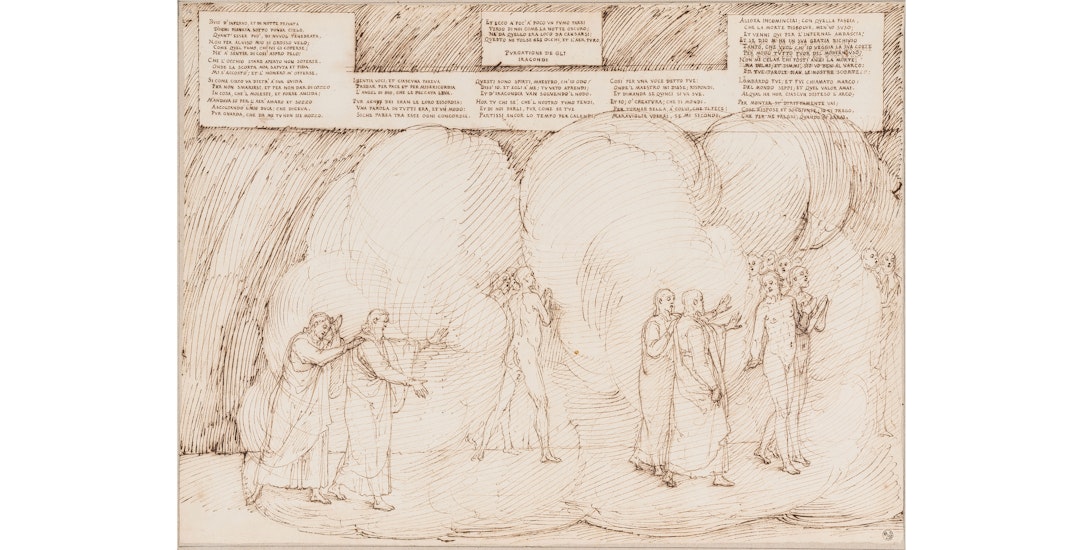 BUIO D'INFERNO, ET DI NOTTE PRIVATA
D'OGNI PIANETA SOTTO POVER CIELO,
QUANT' ESSER PUO', DI NUVOL TENEBRATA,
NON FER AL VISO MIO SI GROSSO VELO;
COME QUEL FUMO, CH'IVI CI COPERSE;
NE' A SENTIR DI COSI' ASPRO PELO:
CHE L'OCCHIO STARE APERTO NON SOFERSE.
ONDE LA SCORTA MIA SAPUTA ET FIDA
MI S'ACCOSTO; ET L'HOMERO M' OFFERSE.
SI COME CIECO VA DIETR' A SUA GUIDA
PER NON SMARIRSI, ET PER NON DAR DI COZZO
IN COSA, CHE 'L MOLESTI, ET FORSE ANCIDA;
M'ANDAVA IO PER L'AER AMARO ET SOZZO
ASCOLTANDO 'L MIO DUCA, CHE DICEVA,
PUR GUARDA, CHE DA ME TU NON SII MOZZO.
I SENTIA VOCI, ET CIASCUNA PAREVA
PREGAR PER PACE ET PER MISERICORDIA
L'AGNEL DI DIO, CHE LE PECCATA LEVA.
PUR AGNUS DEI ERAN LE LORO ESSORDIA:
UNA PAROLA IN TUTTI ERA, ET UN MODO;
SI CHE PAREA TRA ESSE OGNI CONCORDIA.
ET ECCO A POC' A POCO UN FUMO FARSI
VERSO DI NOI COME LA NOTTE OSCURO;
NE DA QUELLO ERA LOCO DA CANSARSI:
QUESTO NE TOLSE GLI OCCHI, ET L'AER PURO.
PURGATIONE DE GLI
IRACONDI
QUESTI SONO SPIRTI, MAESTRO, CH'IO ODO?
DISS' IO. ET EGLI A ME: TU VERO APRENDI;
ET D'IRACONDIA VAN SOLVENDO 'L NODO.
HOR TU CHI SE', CHE 'L NOSTRO FUMO FENDI,
ET DI NOI PARLI PUR, COME SE TUE
PARTISSI ENCOR LO TEMPO PER CALENDI?
COSI PER UNA VOCE DETTO FUE:
ONDE 'L MAESTRO MI DISSE, RISPONDI,
ET DIMANDA SE QUINCI SI VA SUE.
ET IO; O CREATURA; CHE TI MONDI,
PER TORNAR BELLA A COLUI, CHE TI FECE;
MARAVIGLIA UDIRAI, SE MI SECONDI.
ALLORA INCOMINCIAI; CON QUELLA FASCIA,
CHE LA MORTE DISSOLVE, MEN'VO SUSO;
ET VENNI QUI PER L'INFERNAL AMBASCIA:
ET SE DIO M' HA IN SUA GRATIA RICHIUSO
TANTO, CHE VUOL CH'IO VEGGIA LA SUA CORTE
PER MODO TUTTO FUOR DEL MODERN USO;
NON MI CELAR CHI FOSTI ANZI LA MORTE;
MA DILMI; ET DIMMI, S'IO VO BEN AL VARCO:
ET TUE PAROLE FIAN LE NOSTRE SCORTE.
LOMBARDO FUI, ET FUI CHIAMATO MARCO:
DEL MONDO SEPPI, ET QUEL VALOR AMAI,
AL QUAL HOR CIASCUN DISTESO L'ARCO:
PER MONTAR SU DIRITTAMENTE VAI:
COSI RISPOSE ET SOGGIUNSE, IO TI PREGO,
CHE PER ME PREGHI, QUANDO SU SARAI.